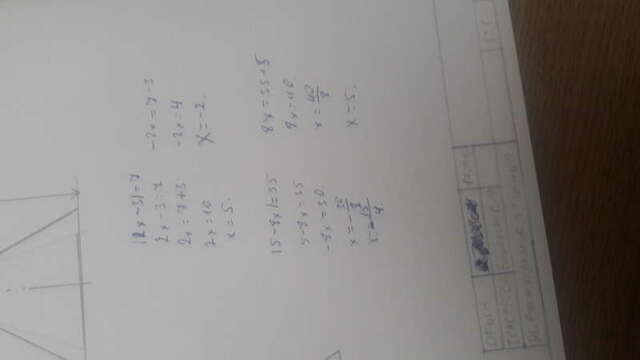 |2x-3|=7
2x-3=7
2x=7+3
2x=10
x=5.
-2x=7-3
-2x=4
x=-2.
|5-8x|=35
5-8x=35
-8x=30
x=-30/8
x=-15/4.
8x=35+5
8x=40
x=40/8
x=5.